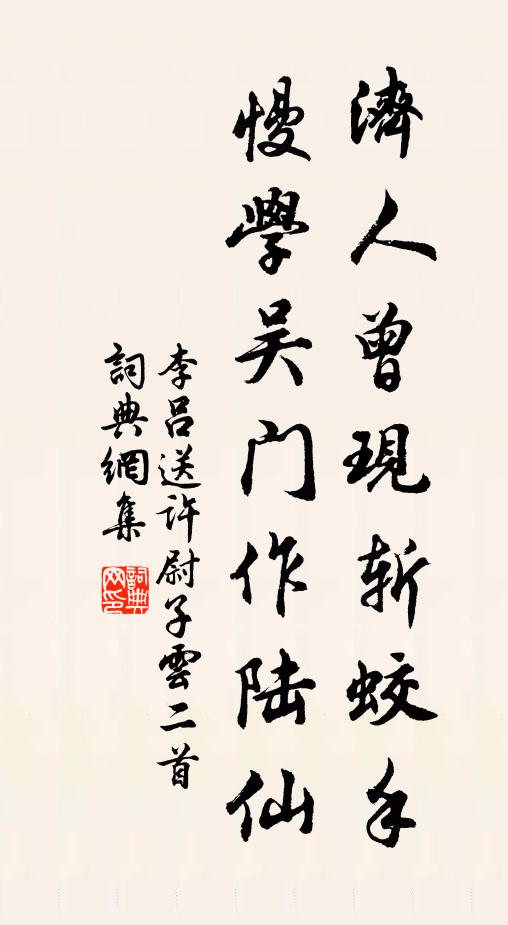 濟人曾現斬蛟手
慢學吴门作陆仙
李吕送許尉子雲二首
詞典網集
詞典網印